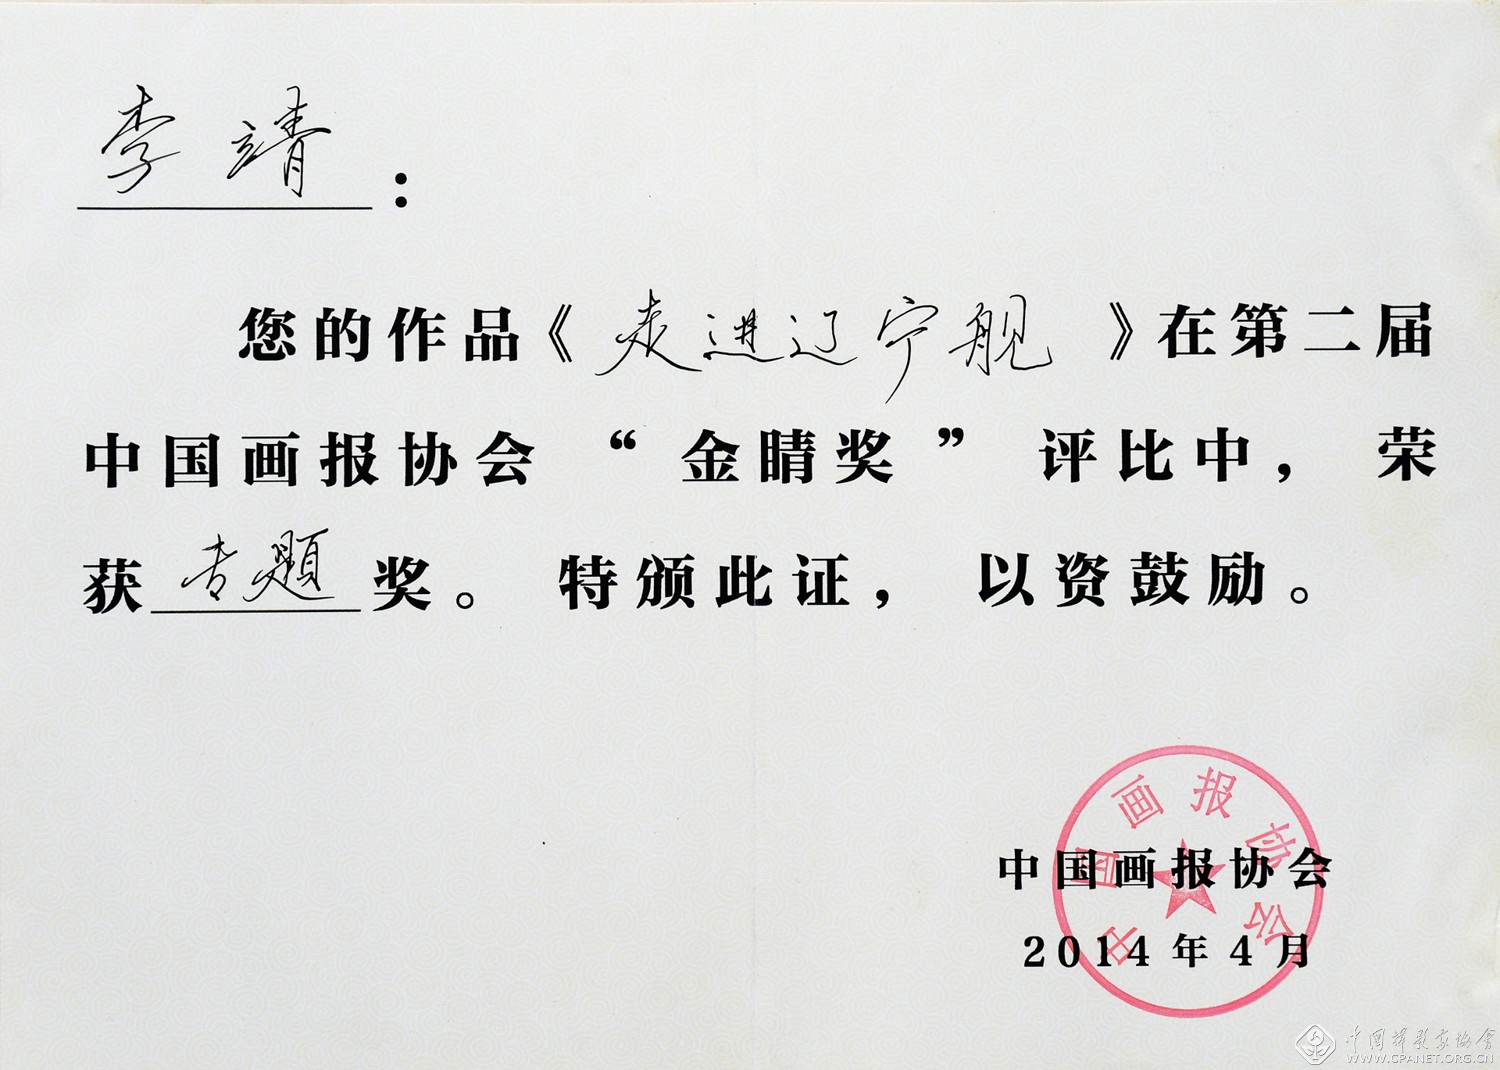 李靖：
您的作品《走进辽宁舰》在第二届
中国画报协会“金睛奖”评比中，荣
获专题奖。特颁此证，以资鼓励。
中国画报协会
中国画报协会
2014年4月
中国摄影家协会
WWW.CPANET.ORG.CN